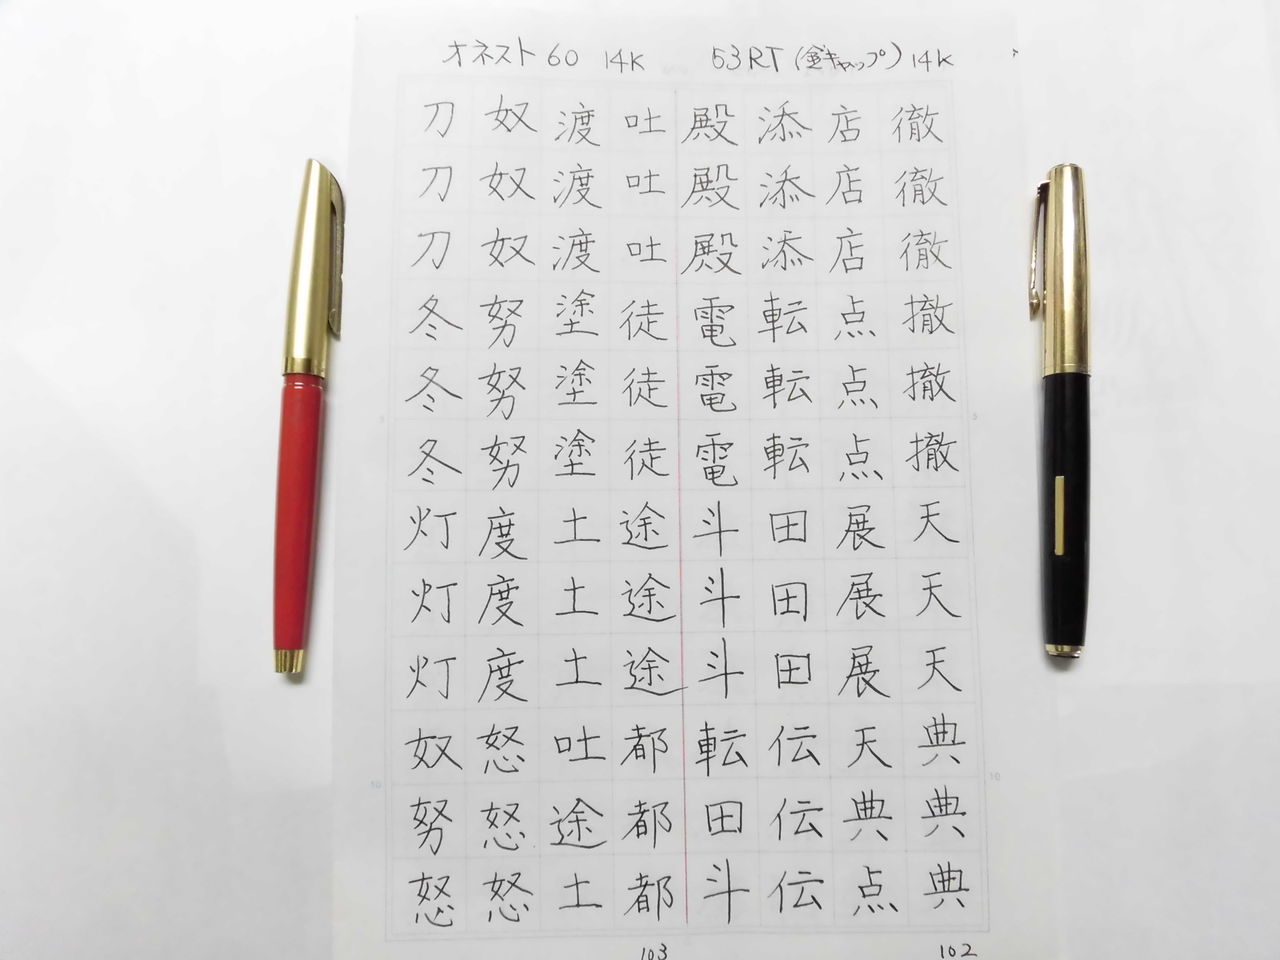 オネスト60 14K 53RT(金キャップ)14K
徹徹徹撤撤撤天天天典典典
店店店点点点展展展天典点
添添添転転転田田田伝伝伝
殿殿殿電電電斗斗斗転田斗
吐吐吐徒徒徒途途途都都都
渡渡渡塗塗塗土土土吐途土
奴奴奴努努努度度度怒怒怒
刀刀刀冬冬冬灯灯灯奴努怒
5
10
5
10
103 102